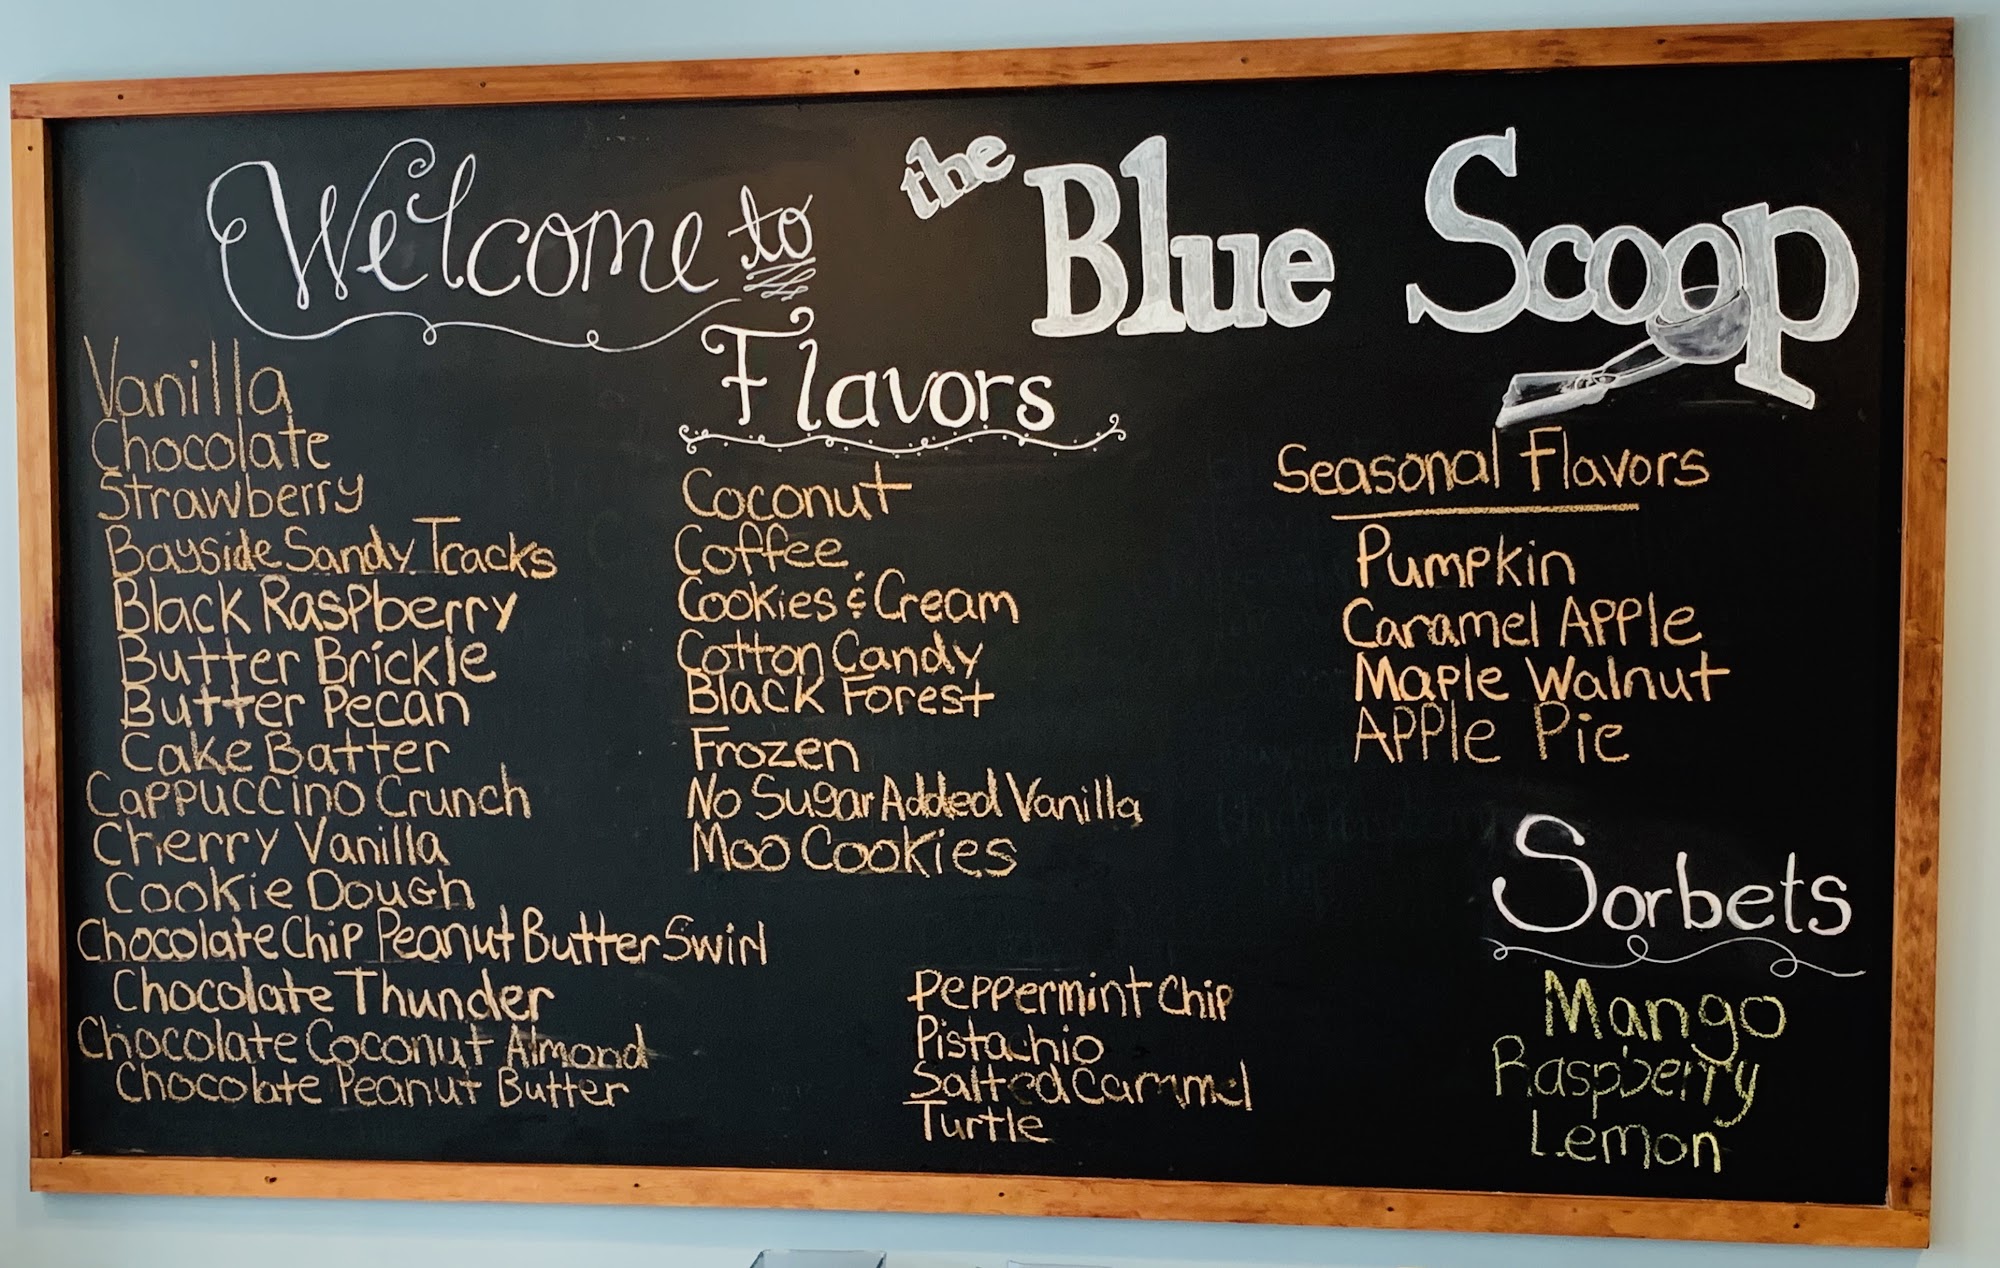 Welcome to
the Blue Scoop
Flavors
Vanilla
Chocolate
Strawberry
Bayside Sandy Tracks
Black Raspberry
Butter Brickle
Butter Pecan
Cake Batter
Cappuccino Crunch
Cherry Vanilla
Cookie Dough
Chocolate Chip Peanut Butter Swirl
Chocolate Thunder
Chocolate Coconut Almond
Chocolate Peanut Butter
Coconut
Coffee
Cookies & Cream
Cotton Candy
Black Forest
Frozen
No Sugar Added Vanilla
Moo Cookies
Peppermint Chip
Pistachio
Salted Caramel
Turtle
Seasonal Flavors
Pumpkin
Caramel Apple
Maple Walnut
Apple Pie
Sorbets
Mango
Raspberry
Lemon